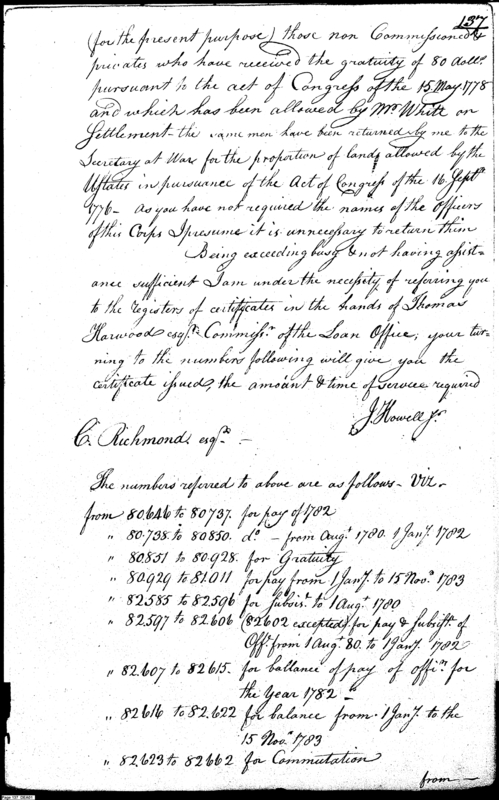 137
(for the present purpose) those non Commissioned &
privates who have received the gratuity of 80 dolls
pursuant to the act of Congress of the 15 May 1778
and which has been allowed by Mr White on
Settlement - the same men have been returned by me to the
Secretary at War for the proportion of lands allowed by the
Ustates in pursuance of the Act of Congress of the 16 Septr
1776 - as you have not required the names of the Officers
of this Corps I presume it is unnecessary to return them
Being exceeding busy & not having assist-
ance sufficient I am under the necessity of referring you
to the registers of certificates in the hands of Thomas
Harwood esqr. Commissr. of the Loan Office; your tur-
ning to the numbers following will give you the
certificate issued, the amount & time of service required
J Howell Jr.
C. Richmond esqr. -
The numbers referred to above are as follows - Viz -
from 80.646 to 80.737. for pay of 1782
" 80.738 to 80.850. do - from Augt 1780. 1 Jany. 1782
" 80.851 to 80.928. for Gratuity
" 80.929 to 81.011 for pay from 1 Jany. to 15 Novr. 1783
" 82.585 to 82.596 for Subsist. to 1 Augt 1780
" 82.597 to 82.606 (82602 excepted) for pay & Subsist. of
Offr. from 1 Augt 80. to 1 Jany. 1782
" 82.607 to 82.615. for ballance of pay of offirs for
the Year 1782 -
" 82.616 to 82.622 for balance from 1 Jany. to the
15 Novr. 1783
" 82.623 to 82662 for Commutation
from -